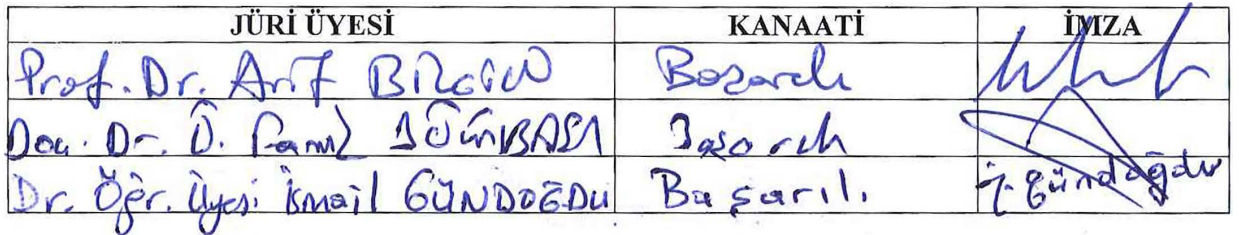 JÜRİ ÜYESİ KANAATİ İMZA
Prof. Dr. Arif BİLGİN Başarılı
Doç. Dr. Ö. Faruk Başarılı
Dr. Öğr. Üyesi İsmail GÜNDOĞDU Başarılı İ. Gündoğdu